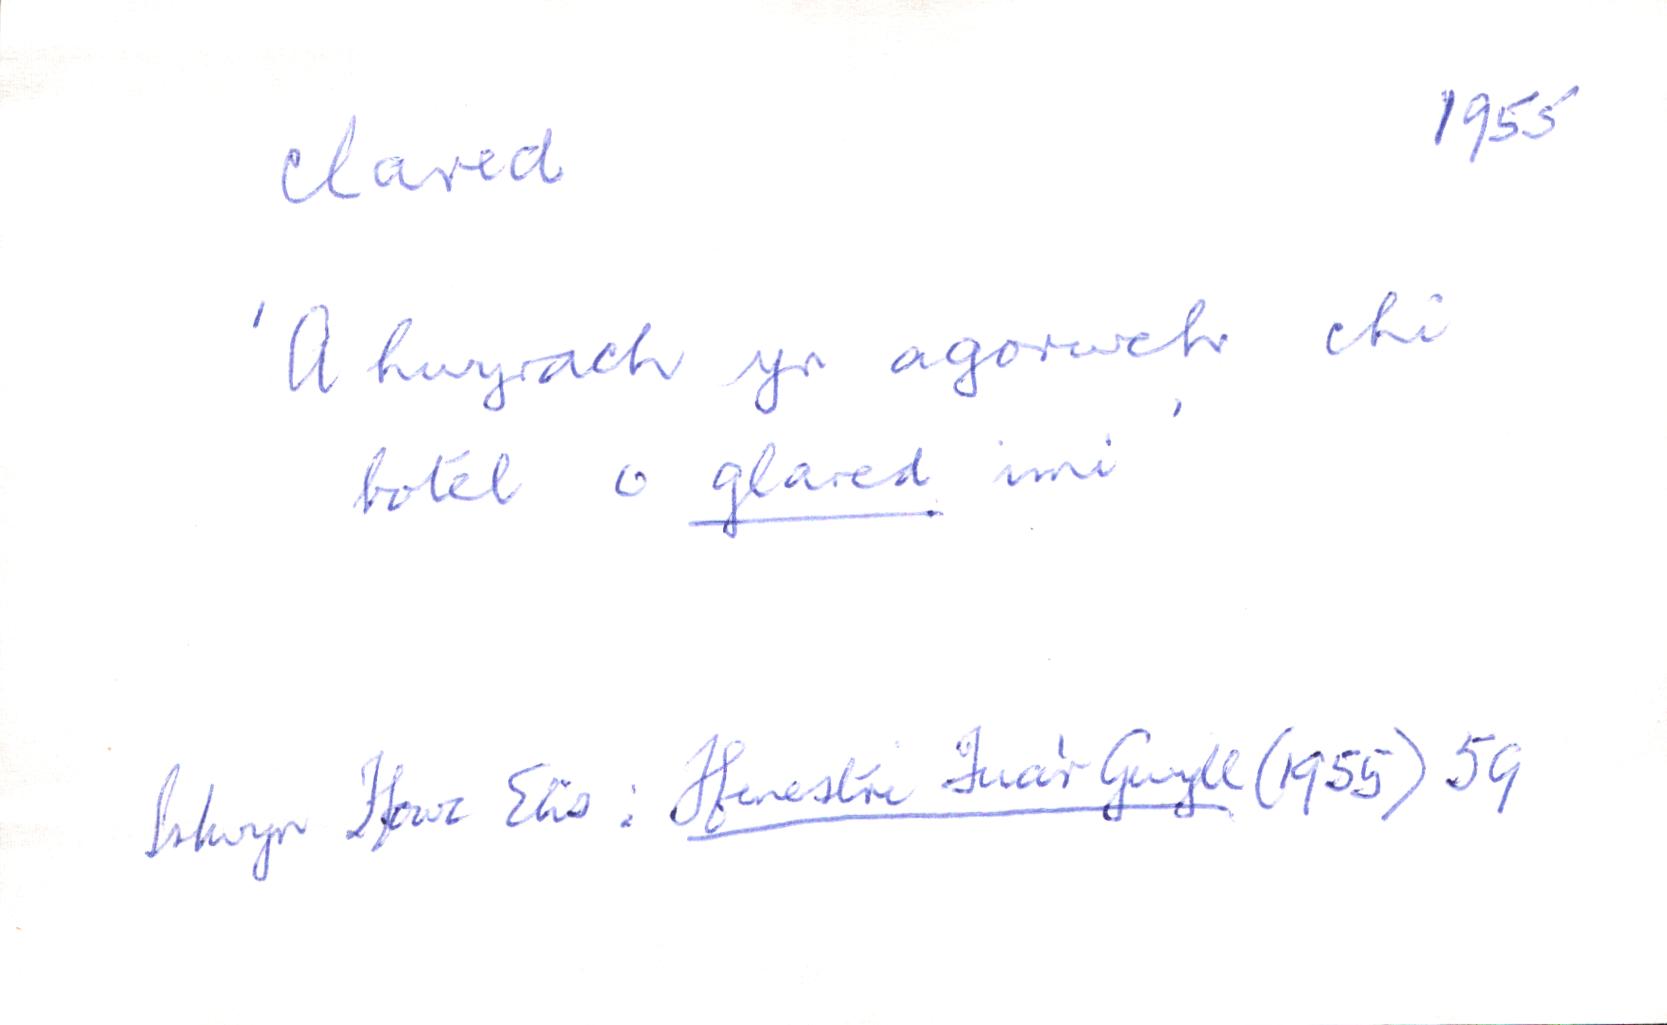 clared 1955
'A hwyrach yr agorwch chi
botel o glared imi'
Islwyn Ffowc Elis : Ffenestri Tua'r Gwyll (1955) 59